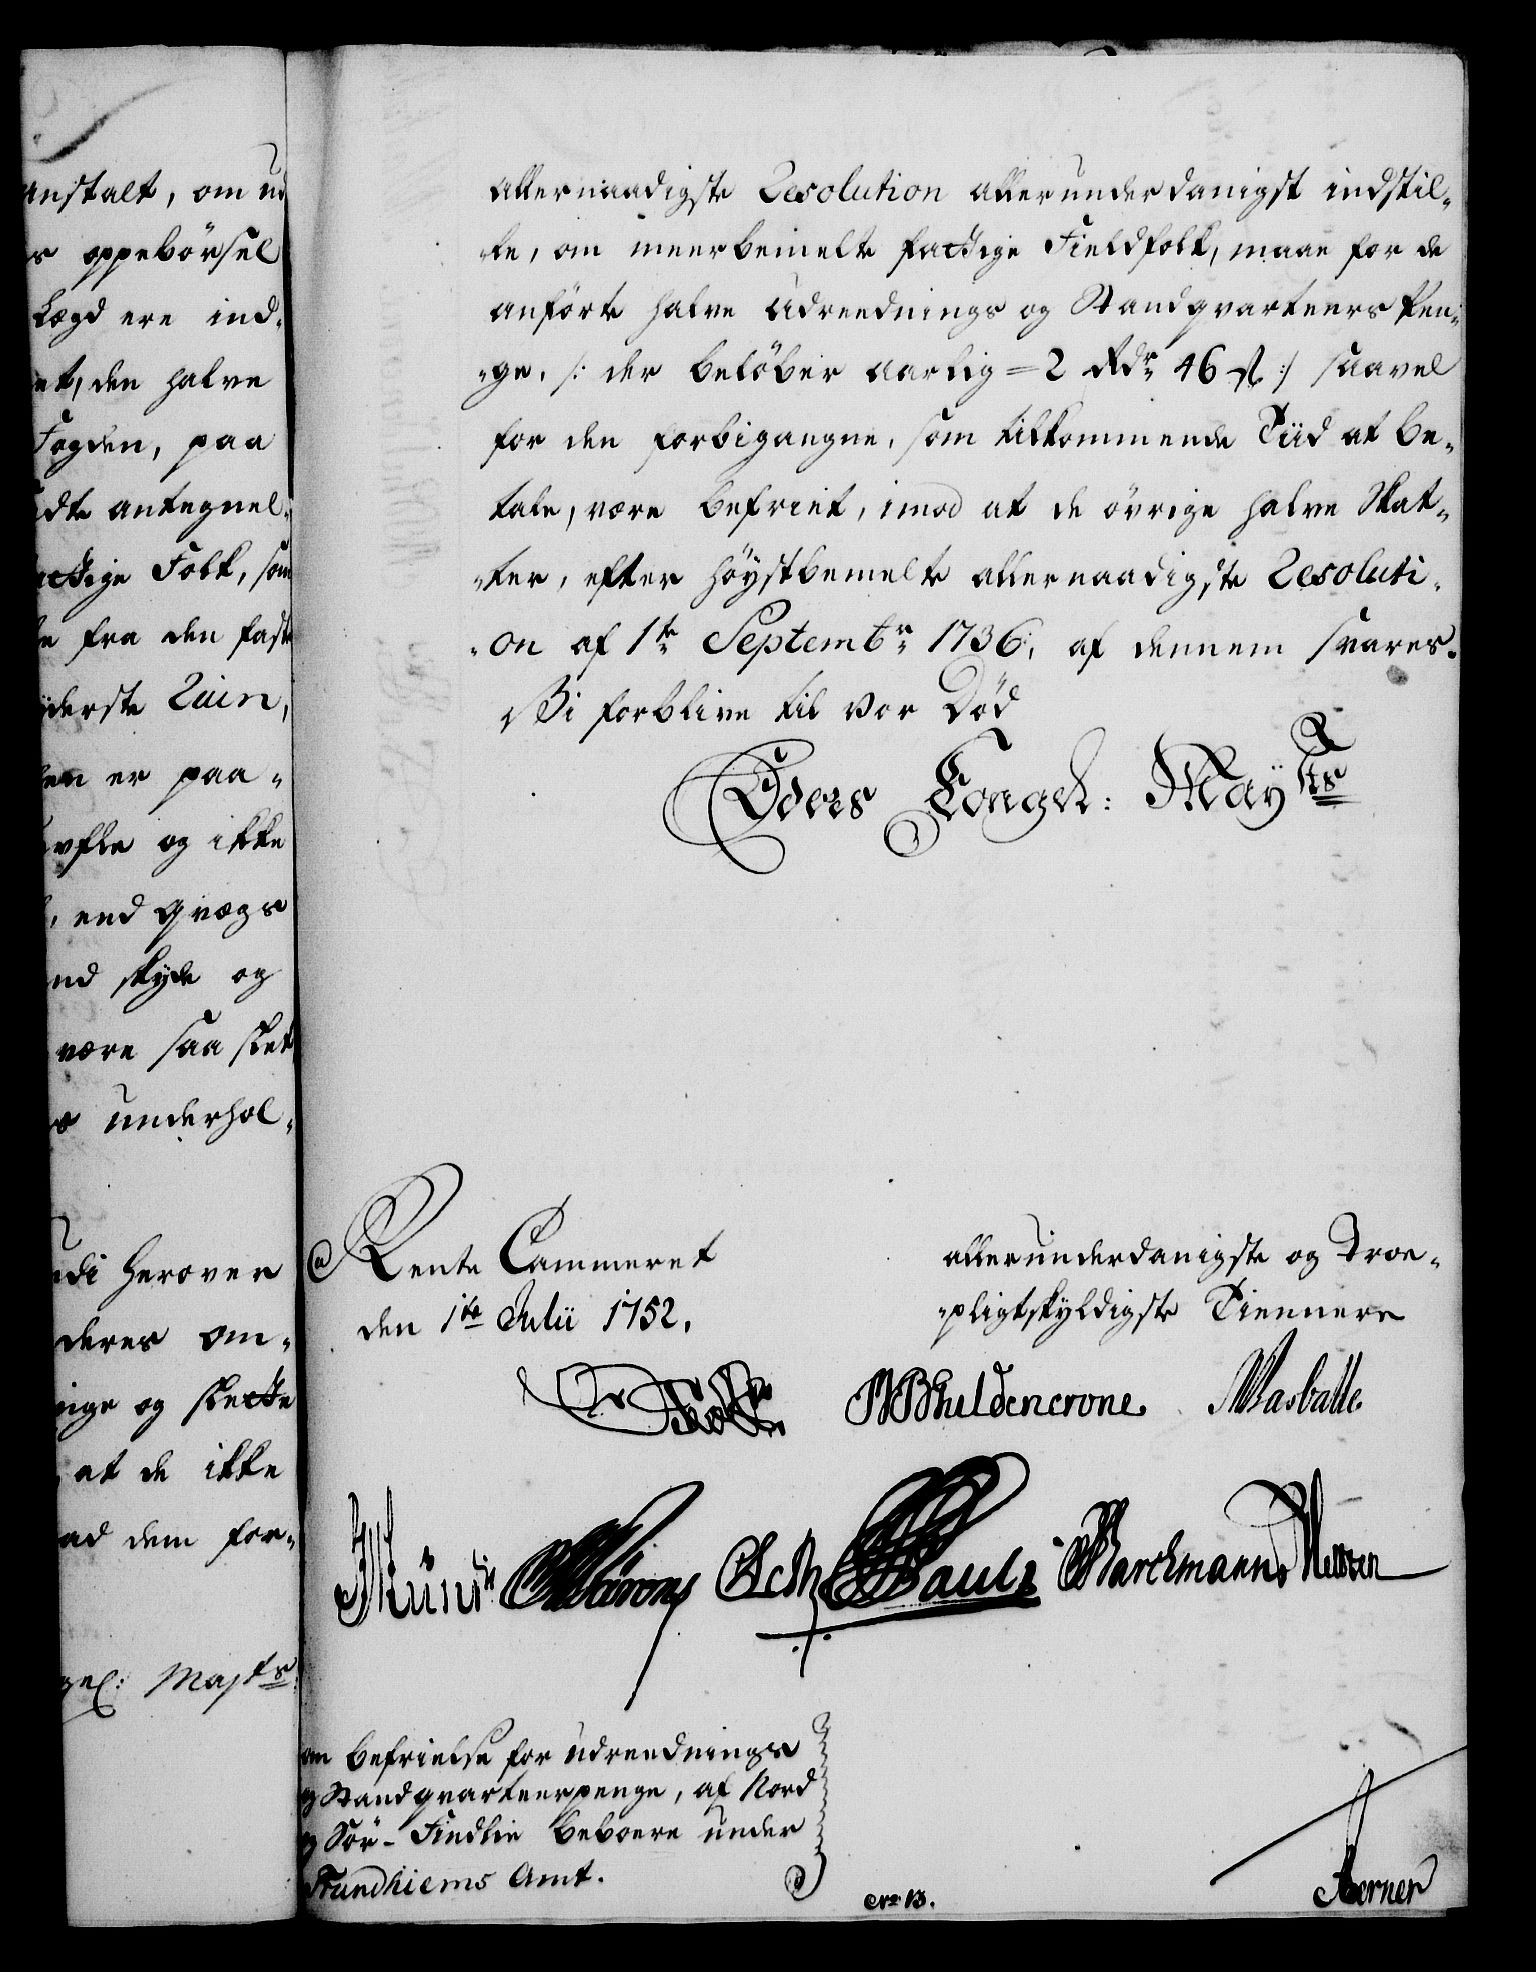 anstalt, om ud
s oppebörsel
Lægd ere ind-
et, den halve
Fogden, paa
dte antegnel-
attige Folk, som
fra den faste
yderste Ruin,
en er paa-
og ikke
, end qvægs
nd skyde og
være saa slet
s underhol-
udi herover
deres om-
ringe og slette
at de ikke
ad dem for-
gel: Majts
allernaadigste Resolution allerunderdanigst indstil-
le, om meerbemelte fattige Fieldfolk, maae for de
anförte halve Udreednings og Standqvarteers Pen-
-ge, /: der belöber aarlig = 2 Rdr 46 s :/ saavel
for den forbigangne, som tilkommende Tiid at be-
tale, være befriet, imod at de övrige halve Skat-
-ter, efter höystbemelte allernaadigste Resoluti-
-on af 1te Septembr 1736, af dennem svares.
Vi forblive til vor Död
Eders Kongel: Mayts
Rente Cammeret
den 1te Julii 1752.
allerunderdanigste og Troe-
-pligtskyldigste Tiennere
Huldencrone
Pauli Barckmann
om befrielse for Udreednings
og Standqvarteerpenge, af Nord
og Sör- Findlie beboere under
Trundhiems Amt.
No 13.